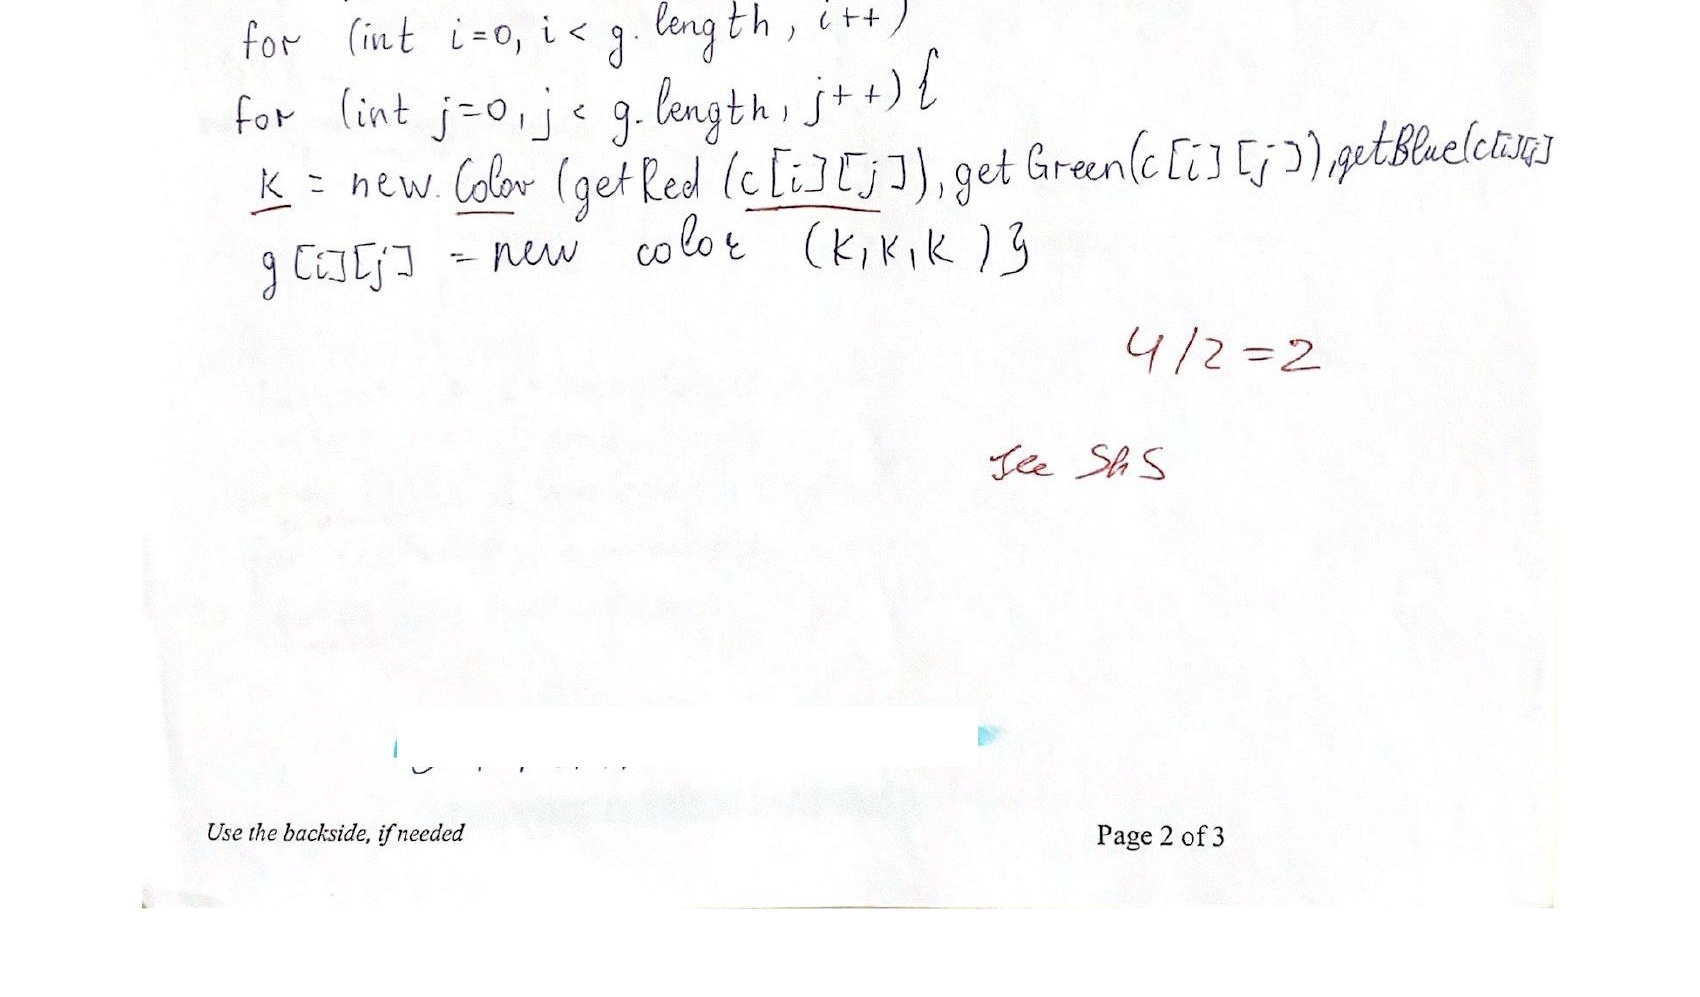 for (int i=0, i < g. length, i++)
for (int j=0, j < g. length, j++) {
K = new. Color (getRed (c[i][j]), getGreen(c[i][j]), getBlue(c[i][j]
g[i][j] = new color (K,K,K)}
4/2=2
See ShS
Use the backside, if needed
Page 2 of 3